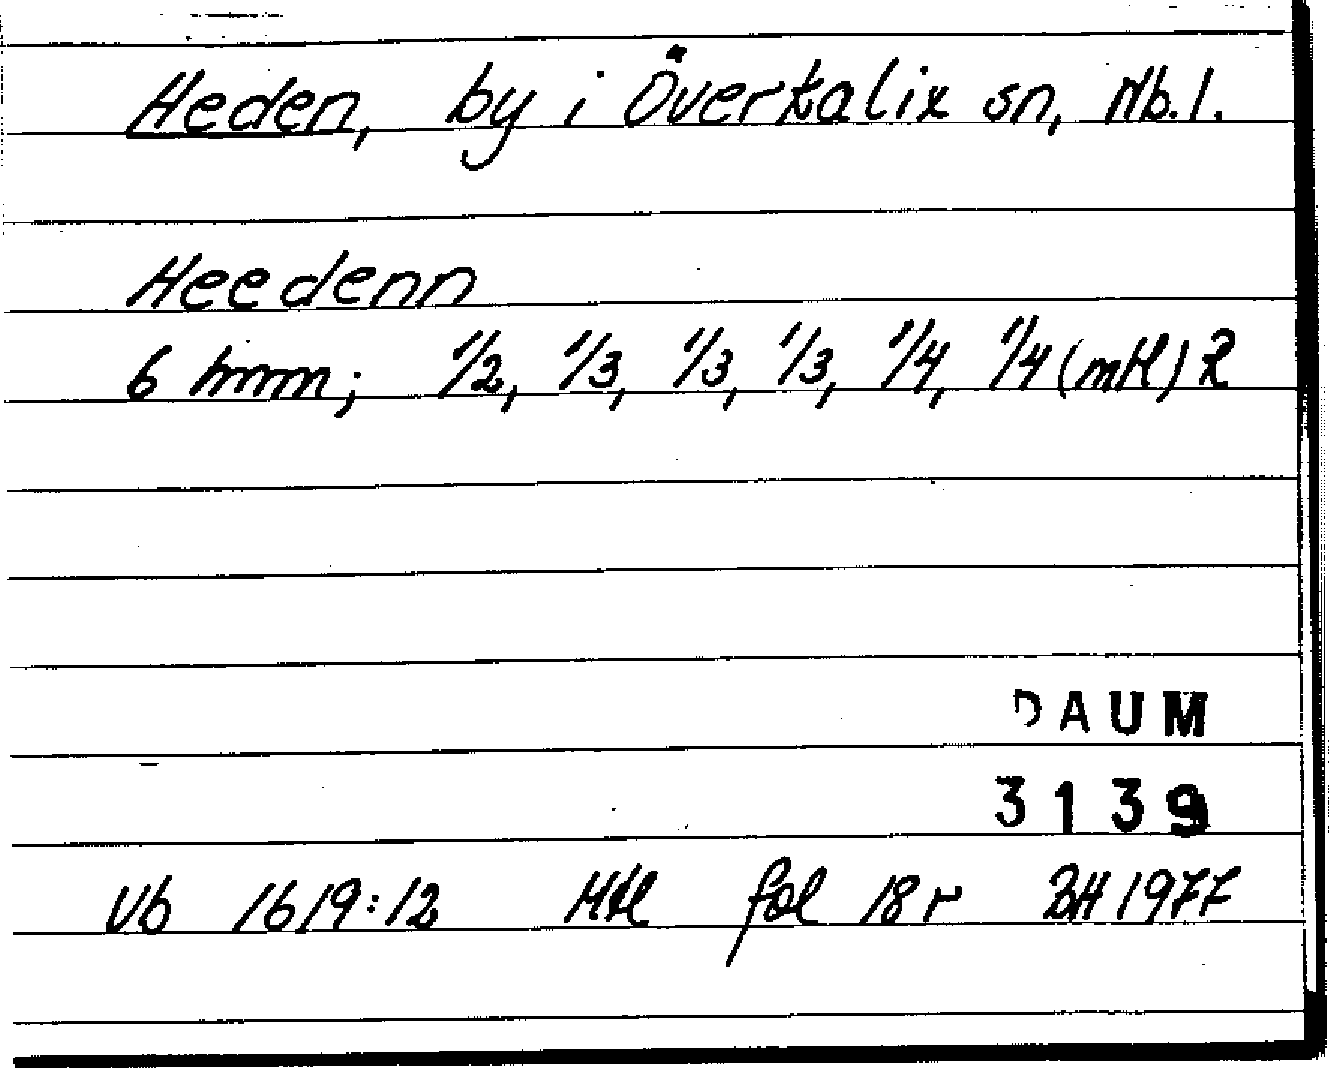 Heden, by i Överkalix sn, Nb. l.
Heedenn
6 hmm; 1/2, 1/3, 1/3, 1/3, 1/4, 1/4 (mtl) R
DAUM
3139
Vb 1619:12 Mtl fol 18 r BH 1977